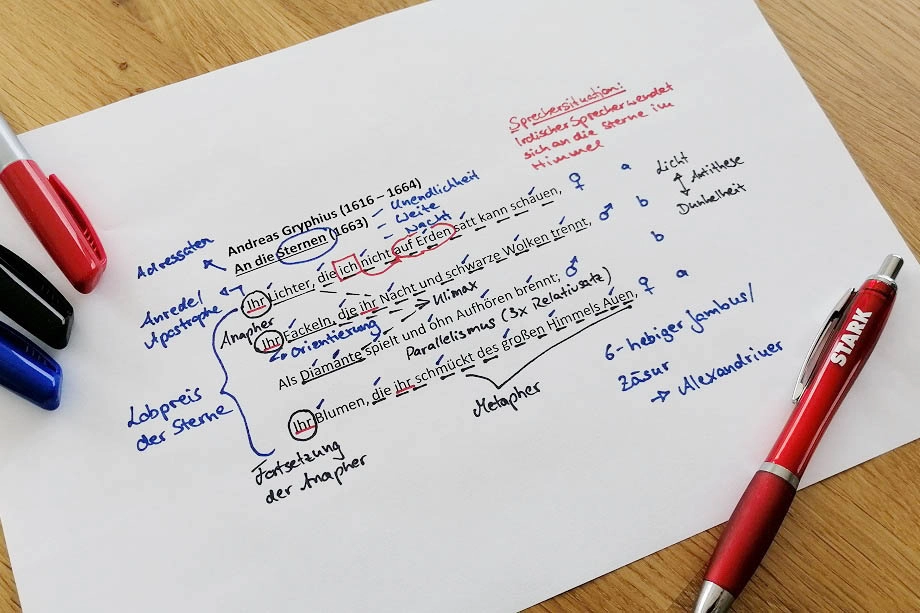 Sprechersituation:
Irdischer Sprecher wendet
sich an die Sterne im
Himmel
Andreas Gryphius (1616 – 1664)
An die Sternen (1663)
– Unendlichkeit
– Weite
– Nacht
Adressaten
Ihr Lichter, die ich nicht auf Erden satt kann schauen,
♀ a
Licht
↕ Antithese
Dunkelheit
Anrede/
Apostrophe
Anapher
Ihr Fackeln, die ihr Nacht und schwarze Wolken trennt,
♂ b
Orientierung
Klimax
Als Diamante spielt und ohn Aufhören brennt;
♂ b
Parallelismus (3x Relativsatz)
Ihr Blumen, die ihr schmückt des großen Himmels Auen,
♀ a
Metapher
Lobpreis
der Sterne
Fortsetzung
der Anapher
6-hebiger Jambus/
Zäsur
→ Alexandriner
STARK